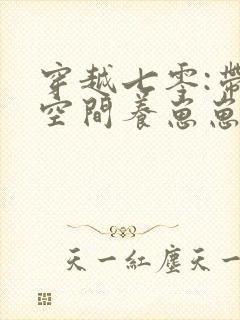 穿越七零:帶
空間養崽崽
天一紅塵天一